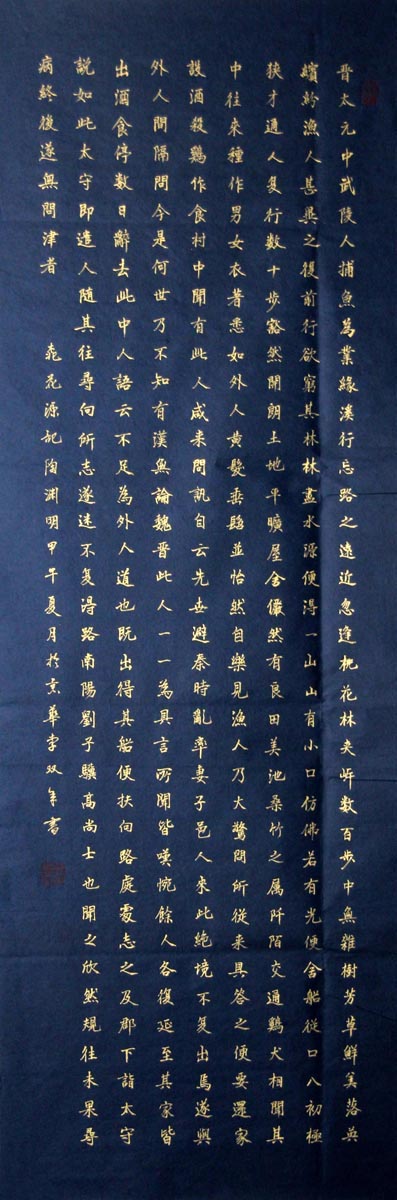 晋太元中武陵人捕魚為業緣溪行忘路之遠近忽逢桃花林夾岸数百步中無雜樹芳草鮮美落英
繽紛漁人甚異之復前行欲窮其林林盡水源便得一山山有小口仿佛若有光便舍船從口入初極
狹才通人复行數十步豁然開朗土地平曠屋舍儼然有良田美池桑竹之属阡陌交通鷄犬相聞其
中往來種作男女衣著悉如外人黄髮垂髫並怡然自樂見漁人乃大驚問所從来具答之便要還家
設酒殺鷄作食村中聞有此人咸来問訊自云先世避秦時亂率妻子邑人來此絶境不复出焉遂與
外人間隔問今是何世乃不知有漢無論魏晋此人一一為具言所聞皆嘆惋餘人各復延至其家皆
出酒食停数日辭去此中人語云不足為外人道也既出得其船便扶向路處處志之及郡下詣太守
説如此太守即遣人随其往尋向所志遂迷不复得路南陽劉子驥高尚士也聞之欣然規往未果尋
病終後遂無問津者 桃花源記陶渊明甲午夏月於京華李双年書